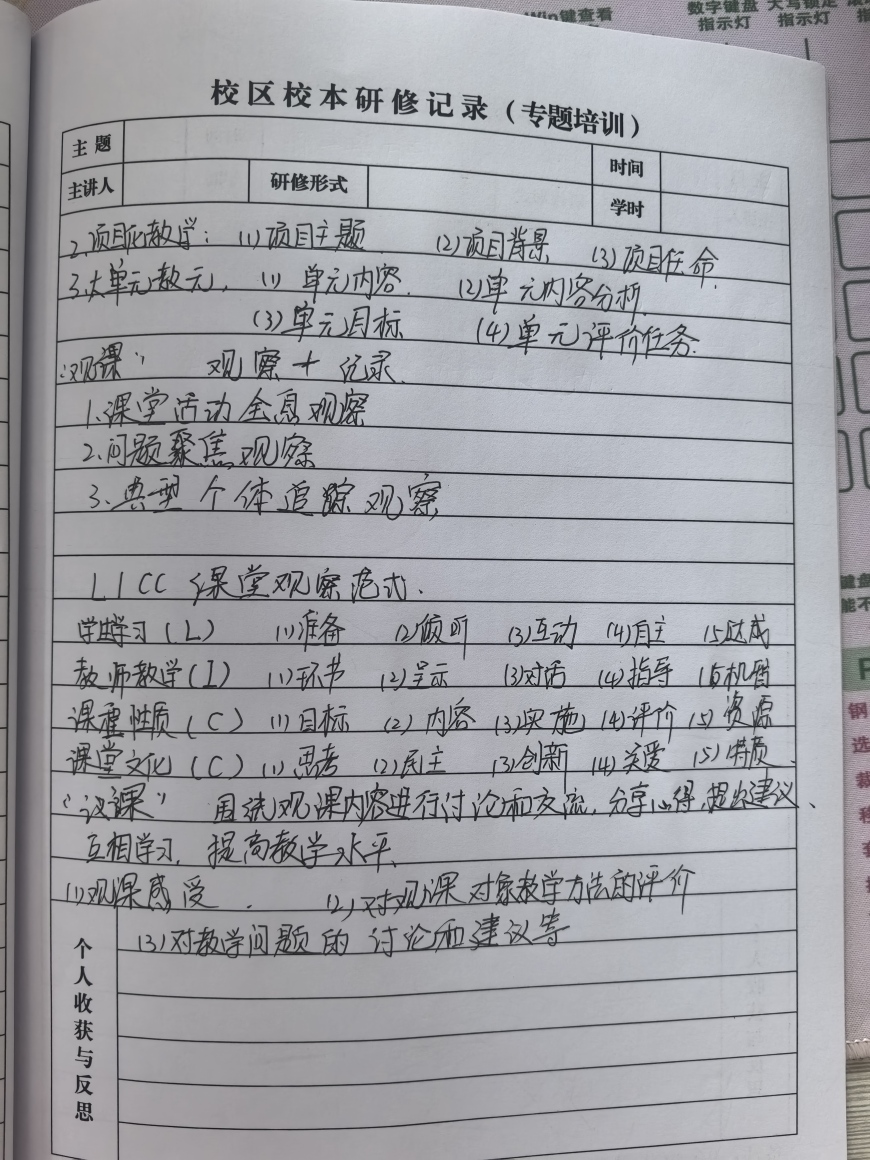 Win键查看
数字键盘 大写锁定
指示灯 指示灯
校区校本研修记录（专题培训）
主题 时间
主讲人 研修形式 学时
2.项目化教学： (1)项目主题 (2)项目背景 (3)项目任命.
3.大单元教元. (1) 单元内容. (2)单元内容分析.
(3)单元目标 (4)单元评价任务.
“观课” 观察＋记录.
1.课堂活动全息观察
2.问题聚焦观察
3.典型个体追踪观察
LICC 课堂观察范式.
学生学习(L) (1)准备 (2)倾听 (3)互动 (4)自主 (5)达成
教师教学(I) (1)环节 (2)呈示 (3)对话 (4)指导 (5)机智
课程性质(C) (1)目标 (2)内容 (3)实施 (4)评价 (5)资源
课堂文化(C) (1)思考 (2)民主 (3)创新 (4)关爱 (5)特质.
“议课” 围绕观课内容进行讨论和交流,分享心得,提出建议、
互相学习,提高教学水平.
(1)观课感受. (2)对观课对象教学方法的评价
(3)对教学问题的讨论和建议等
个人收获与反思
键盘
能不
钢
选
裁